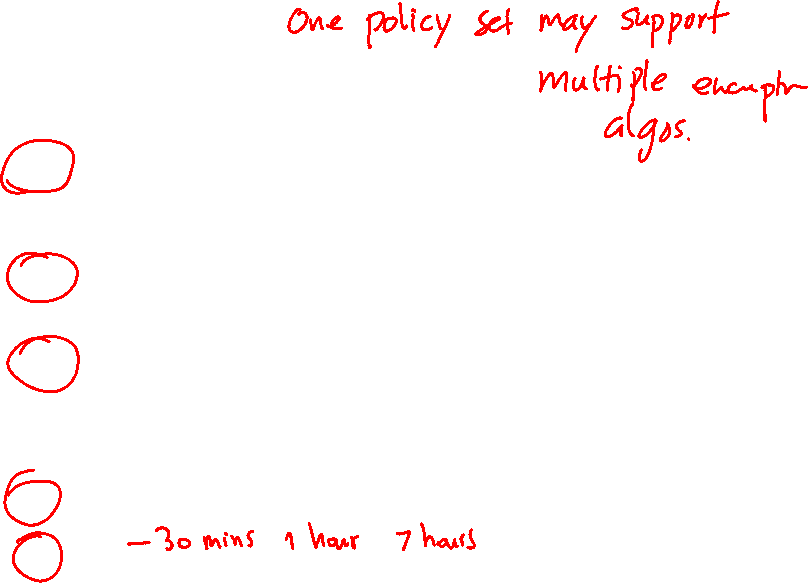 One policy set may support
multiple encryptn
algos.
– 30 mins 1 hour 7 hours